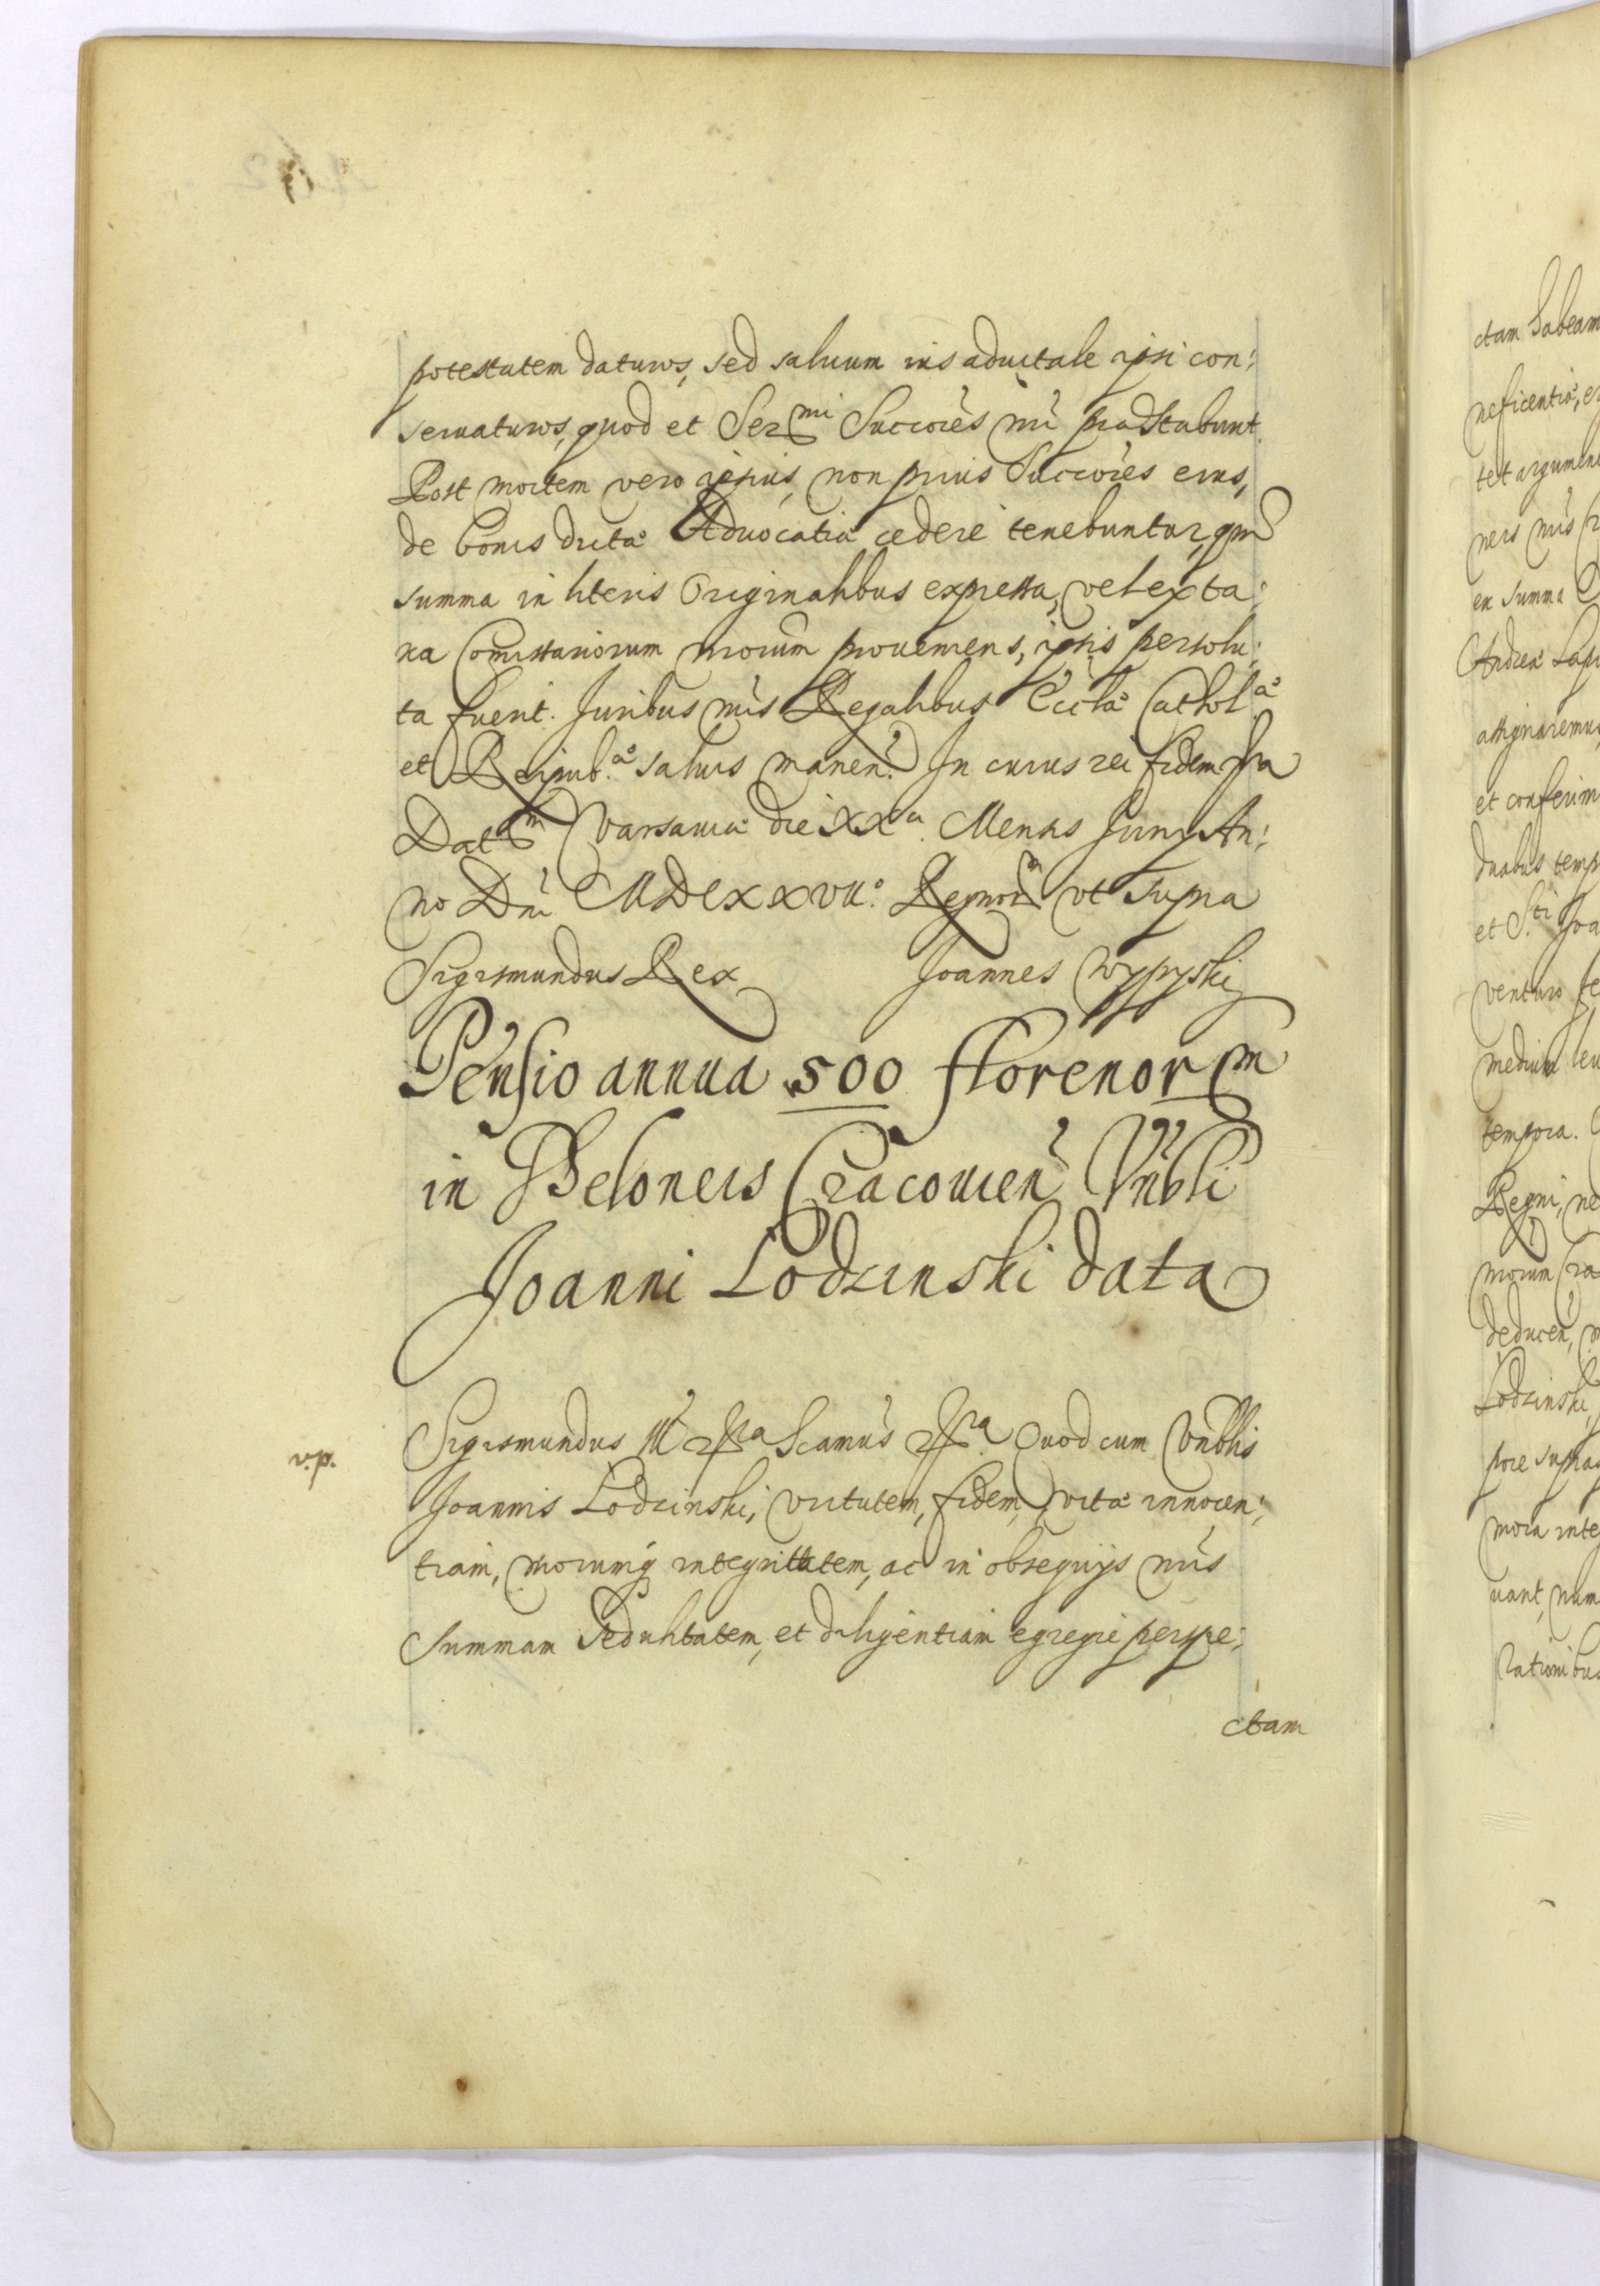 potestatem daturos, sed saluum ius aduitale ipsi con:
seruaturos, quod et Ser mi Succores nri praestabunt.
Post mortem vero ipsius, non prius Succores eius,
de bonis dictae Aduocatiae cedere tenebuntur, qm
summa in literis Originalibus expressa, vel ex ta:
xa Comissariorum nrorum proueniens, ipsis persolu:
ta fuerit. Juribus nris Regalibus Ecclae Cathol ae
et Reipub. ae saluis manen. In cuius rei fidem
Dat m Varsauiae die XX a Mensis Junij An:
no Dni MDCXXVII o. Regnor m vt supra
Sigismundus Rex Joannes Wypyski
Pensio annua 500 florenor m
in Theloneis Cracouien Vrnbli
Joanni Lodzinski data
v.p.
Sigismundus III etc. Scamus etc. Quod cum Vrnblis
Joannis Lodzinski, virtutem, fidem, vitae innocen:
tiam, morumq integritatem, ac in obsequijs nris
summam sedulitatem, et diligentiam egregie perspe:
ctam
ctam habeam
neficentiae, et
tet argumen
neis nris Cr
ex summa
Andreae Lapi
assignaremus
et conferim
duabus temp
et S. ti Joa
venturo fe
medium leu
tempora.
Regni, ne
nrorum Cra
deducen,
Lodzinski,
pore supra
mora inte
uant, num
rationibus